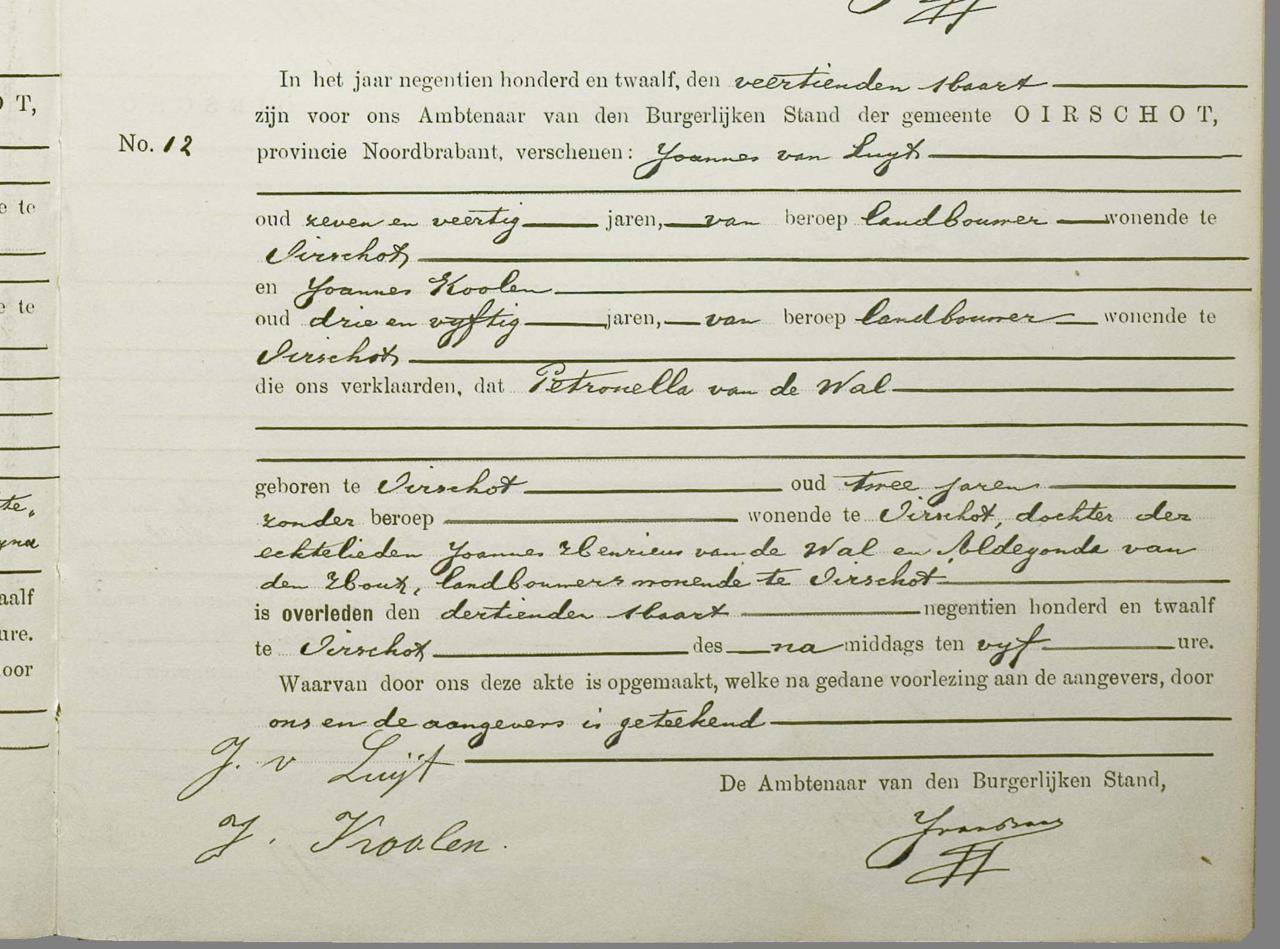 O T,
e te
e te
te,
yna
aalf
ure.
oor
In het jaar negentien honderd en twaalf, den veertienden Maart
zijn voor ons Ambtenaar van den Burgerlijken Stand der gemeente OIRSCHOT,
No. 12
provincie Noordbrabant, verschenen: Joannes van Luyt
oud zeven en veertig jaren, van beroep landbouwer wonende te
Oirschot
en Joannes Koolen
oud drie en vyftig jaren, van beroep landbouwer wonende te
Oirschot
die ons verklaarden, dat Petronella van de Wal
geboren te Oirschot oud twee jaren
zonder beroep wonende te Oirschot, dochter der
echtelieden Joannes Henricus van de Wal en Aldegonda van
den Hout, landbouwers wonende te Oirschot
is overleden den dertienden Maart negentien honderd en twaalf
te Oirschot des na middags ten vyf ure.
Waarvan door ons deze akte is opgemaakt, welke na gedane voorlezing aan de aangevers, door
ons en de aangevers is geteekend
J. v Luijt
De Ambtenaar van den Burgerlijken Stand,
J. Koolen.